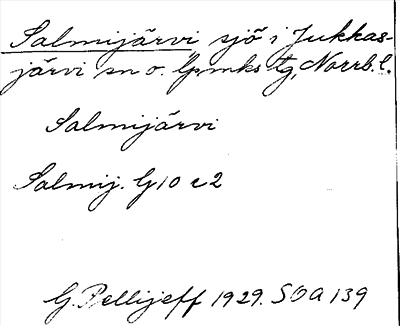 Salmijärvi sjö i Jukkas-
järvi sn o. lpmks tg, Norrb. l.
Salmijärvi
Salmij. G10 c2
G. Pellijeff 1929. SOA 139